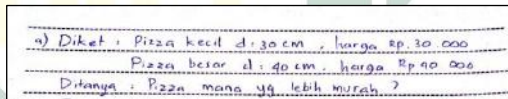 a) Diket : Pizza kecil d: 30 cm , harga Rp. 30.000
Pizza besar d: 40 cm, harga Rp 40 000
Ditanya : Pizza mana yg lebih murah ?